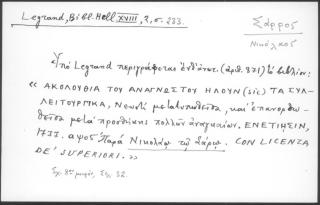 Legrand, Bibl. Hell. XVIII, 2, σ. 233.
Σάρρος
Νικόλαος
Ὑπὸ Legrand περιγράφεται ἐνθάνατ. (ἀριθ. 871) τὸ βιβλίον:
« ΑΚΟΛΟΥΘΙΑ ΤΟΥ ΑΝΑΓΝΩΣΤΟΥ ΗΛΟΥΝ (sic) ΤΑ ΣΥΛ-
ΛΕΙΤΟΥΡΓΙΚΑ, Νεωστὶ μετατυπωθεῖσα, καὶ ἐπανορθω-
θεῖσα μετὰ προσθήκης πολλῶν ἀναγκαίων. ΕΝΕΤΙΗΣΙΝ,
1777. αψοζ Παρὰ Νικολάῳ τῷ Σάρῳ. CON LICENZA
DE' SUPERIORI. »